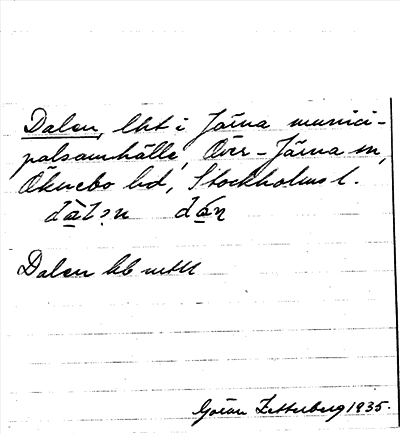 Dalen, lht i Järna munici-
palsamhälle, Över-Järna sn,
Öknebo hd, Stockholms l.
Dalen
Göran Zetterberg 1935.